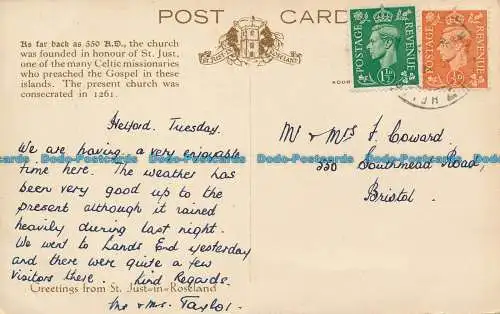 POST CARD
As far back as 550 A.D., the church
was founded in honour of St. Just,
one of the many Celtic missionaries
who preached the Gospel in these
islands. The present church was
consecrated in 1261.
ST. JUST IN ROSELAND
POSTAGE REVENUE
1½D
POSTAGE REVENUE
½D
Helford. Tuesday.
We are having a very enjoyable
time here. The weather has
been very good up to the
present although it rained
heavily during last night.
We went to Lands End yesterday
and there were quite a few
visitors there. Kind Regards.
Mr & Mrs. Taylor.
Mr & Mrs F. Coward.
330 Southmead Road,
Bristol.
Greetings from St. Just-in-Roseland
Dodo-Postcards Dodo-Postcards Dodo-Postcards Dodo-Postcards